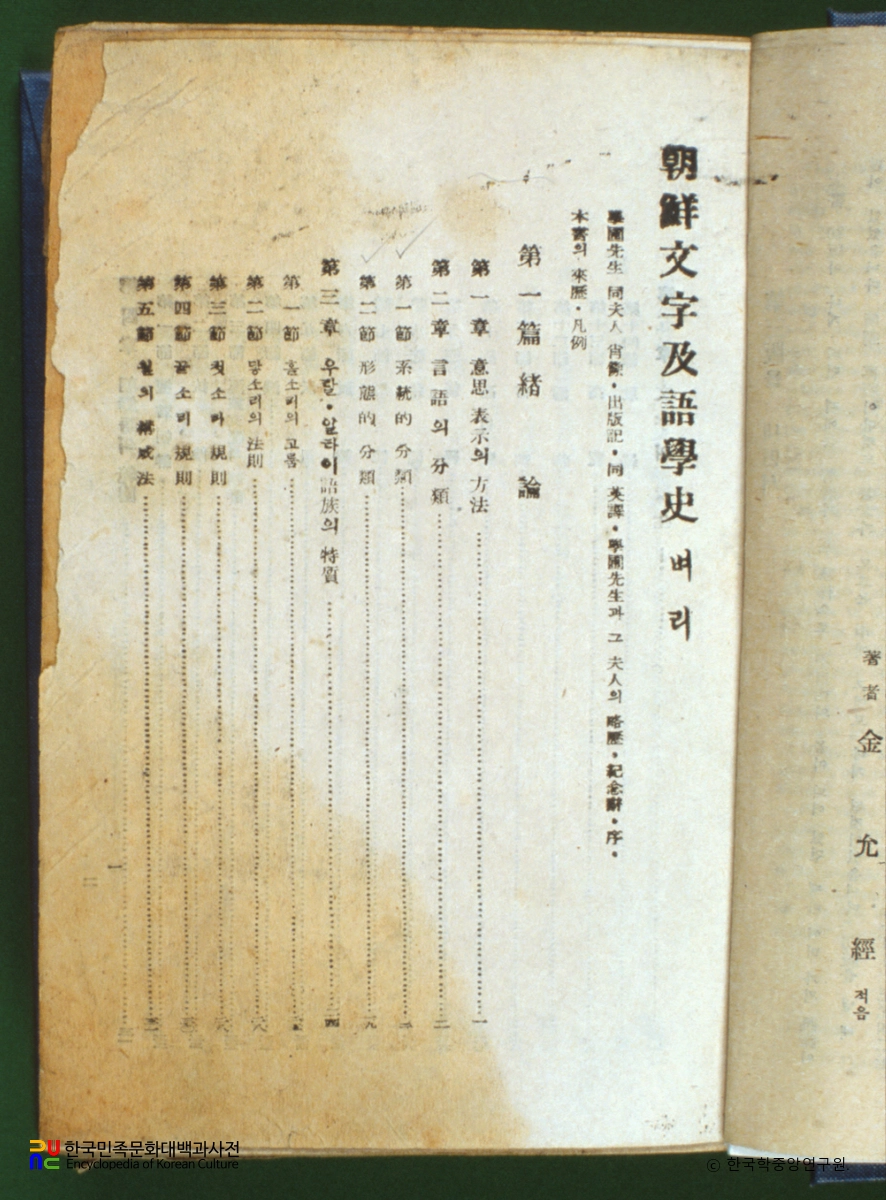 著者 金允經 적음
朝鮮文字及語學史 벼리
學圃先生 同夫人 肖像・出版記・同 英譯・學圃先生과 그 夫人의 略歷・紀念辭・序・
本書의 來歷・凡例
第一篇 緖論
第一章 意思表示의 方法 一
第二章 言語의 分類 二
第一節 系統的 分類
第二節 形態的 分類
第三章 우랄・알타이語族의 特質
第一節 홀소리의 고룸
第二節 닿소리의 法則
第三節 첫소리 規則
第四節 끝소리 規則
第五節 월의 構成法
한국민족문화대백과사전
Encyclopedia of Korean Culture
© 한국학중앙연구원